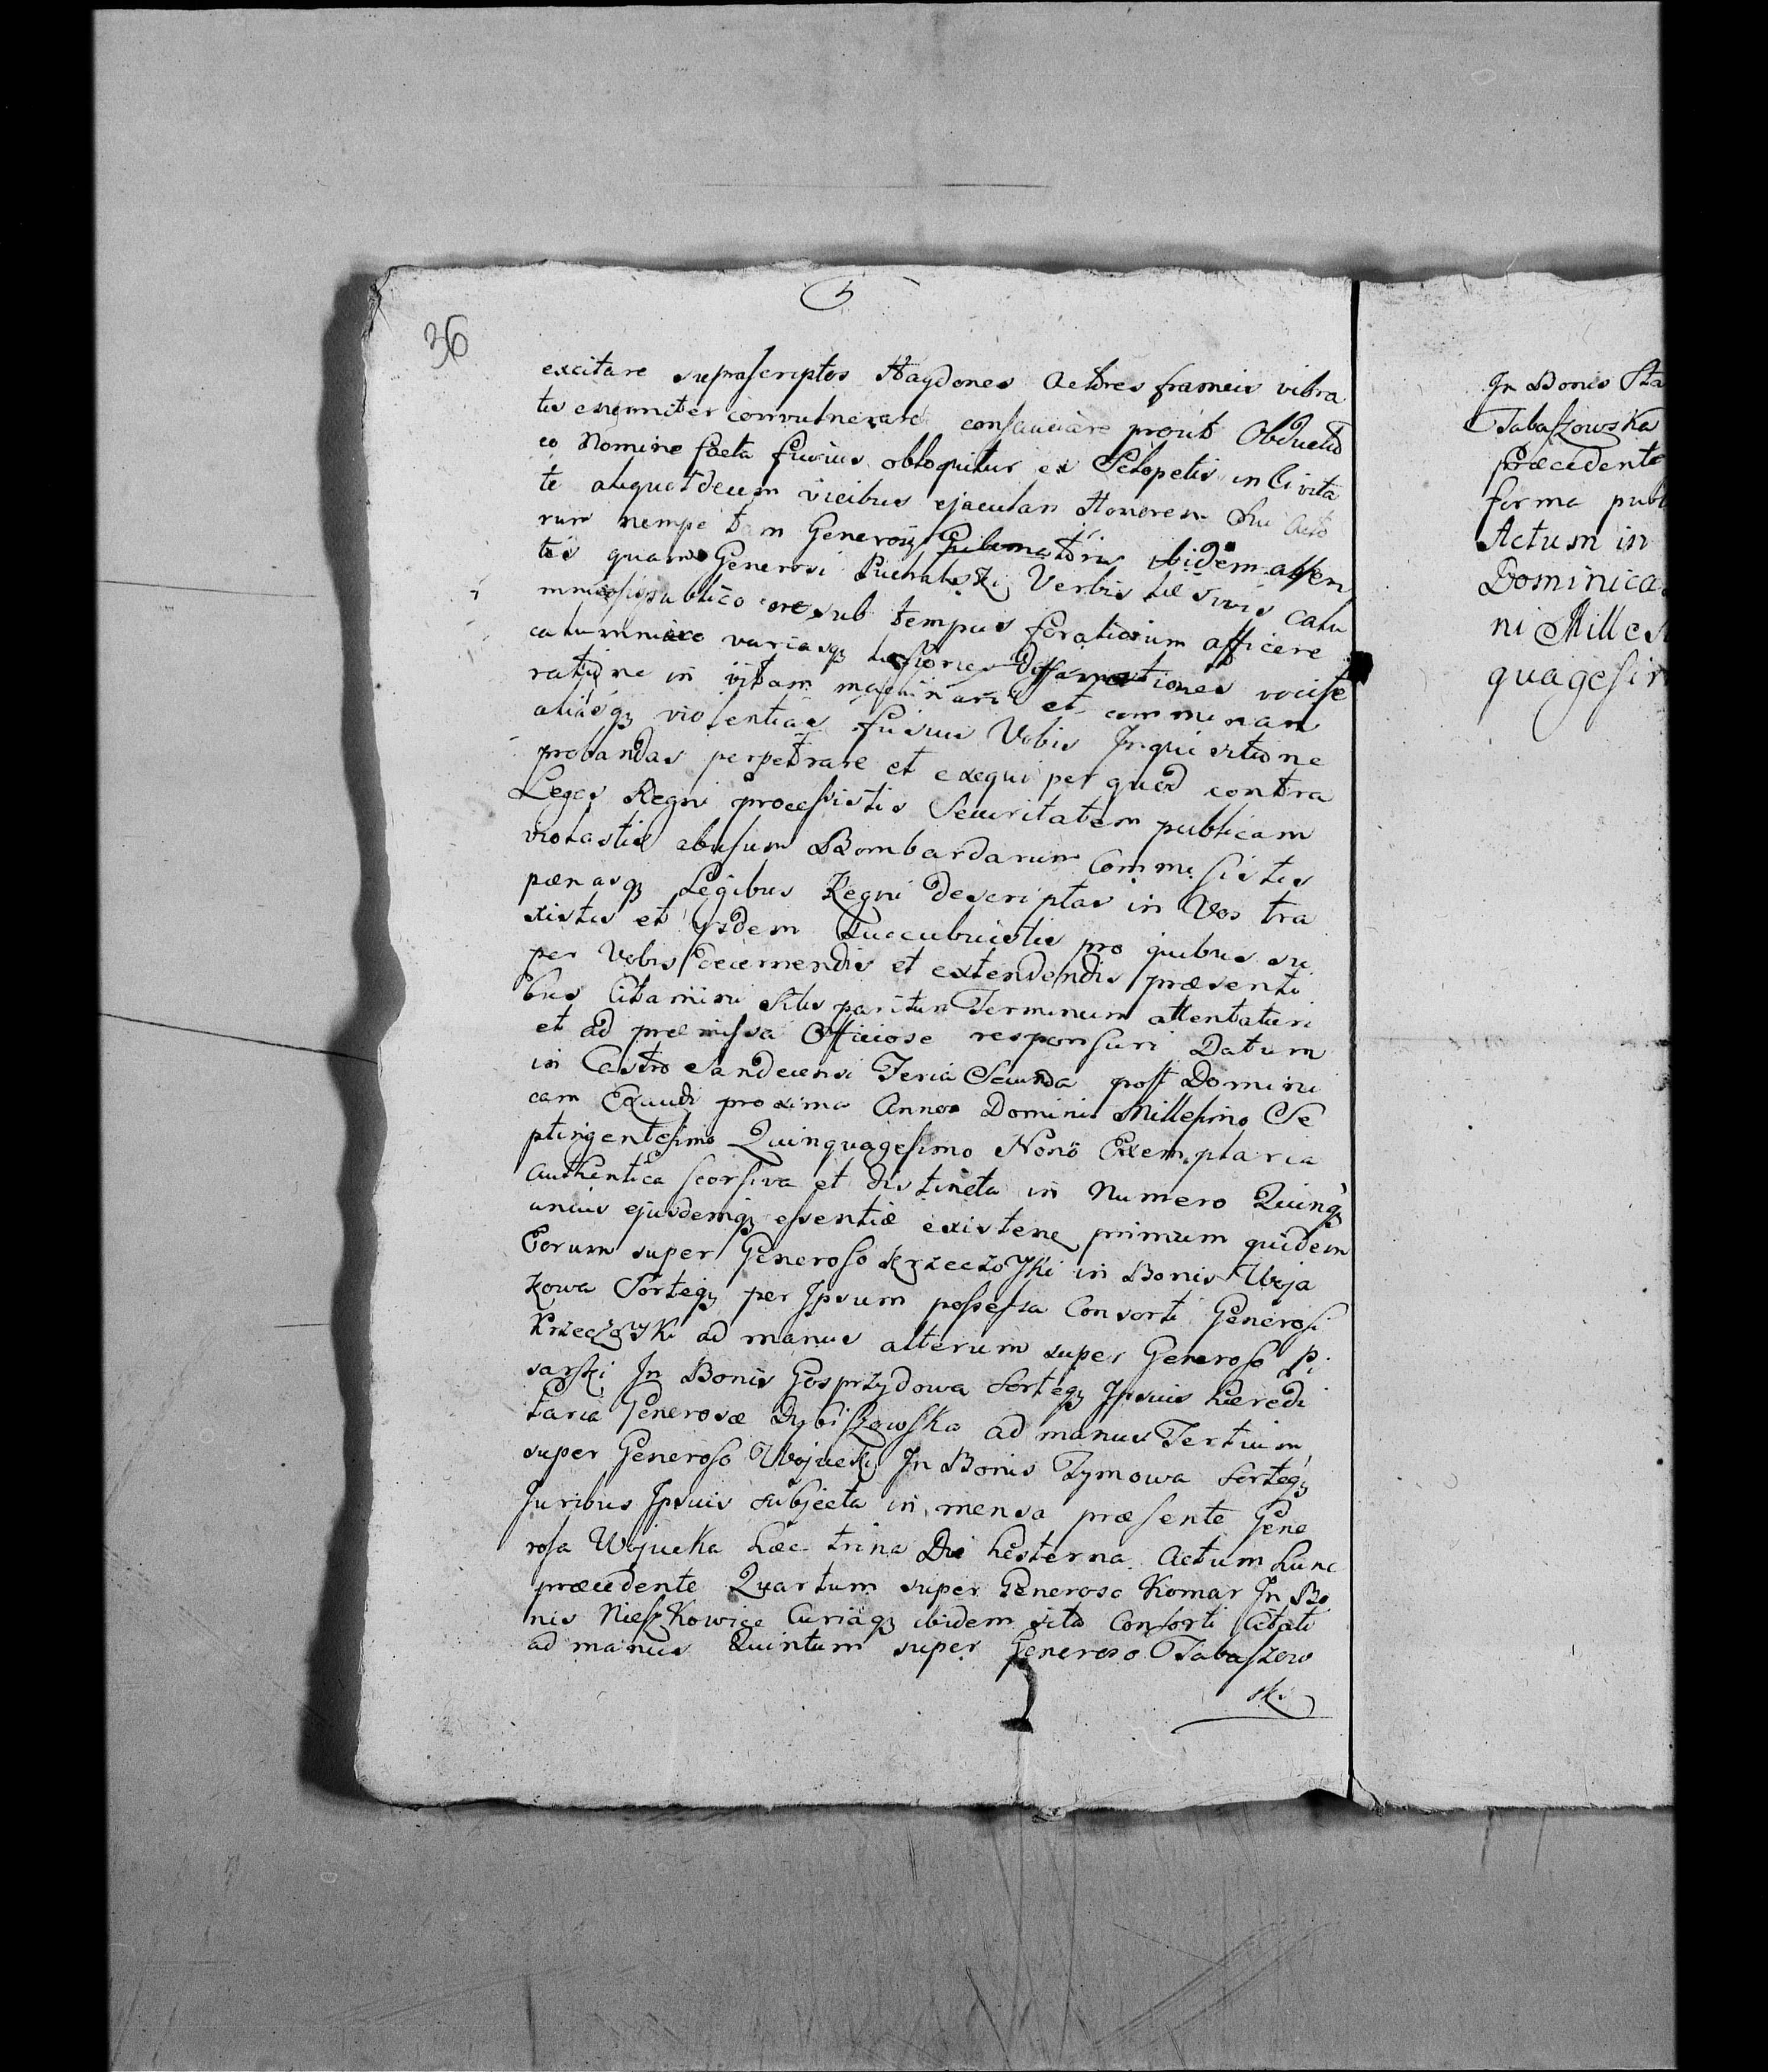 36
excitare suprascriptos Haydones Actores frameis vibra
tis enormiter convulnerare consauciare prout Obductio
eo Nomine facta fusius obloquitur ex Sclopetis in Civita
te aliquotdecem vicibus ejaculari Honorem Sui Acto
rum nempe tam Generosi Gubernatoris ibidem absen
tis quam Generosi Puchalski Verbis læsivis calu
mniosis publico ore sub tempus foralitium afficere
calumniare variasq læsiones Diffamationes vocife
ratione in vitam machinari et comminari
aliasq violentias fusius Vobis Inquisitione
probandas perpetrare et exequi per quod contra
Leges Regni processistis Securitatem publicam
violastis abusum Bombardarum Commisistis
pænasq Legibus Regni descriptas in Vos tra
xistis et ijsdem Succubuistis pro quibus su
per Vobis decernendis et extendendis præsenti
bus Citamini Sitis parituri Terminum attentaturi
et ad præmissa Officiose responsuri Datum
in Castro Sandecensi Feria Secunda post Domini
cam Exaudi proxima Anno Domini Millesimo Se
ptingentesimo Quinquagesimo Nono Exemplaria
authentica seorsiva et distincta in Numero Quinq
unius ejusdemq essentiæ existen primum quidem
Eorum super Generoso Krzeczowski in Bonis Ujaz
kowa Sorteq per Ipsum possessa Consorti Generosi
Krzeczowski ad manus alterum super Generoso Pi
sarski In Bonis Gosprzydowa Sorteq Ipsius hæredi
taria Generosæ Dybiszowska ad manus Tertium
super Generoso Wojucki In Bonis Tymowa Sorteq
Juribus Ipsius subjecta in mensa præsente Gene
rosa Wojucka hæc trina Die hesterna Actum hunc
præcedente Quartum super Generoso Komar In Bo
nis Nieszkowice Curiaq ibidem sita Consorti Citati
ad manus Quintum super Generoso Tabaszow
ski
In Bonis Sta
Tabaszowska
præcedente
forma publ
Actum in
Dominica
ni Milles
quagesim